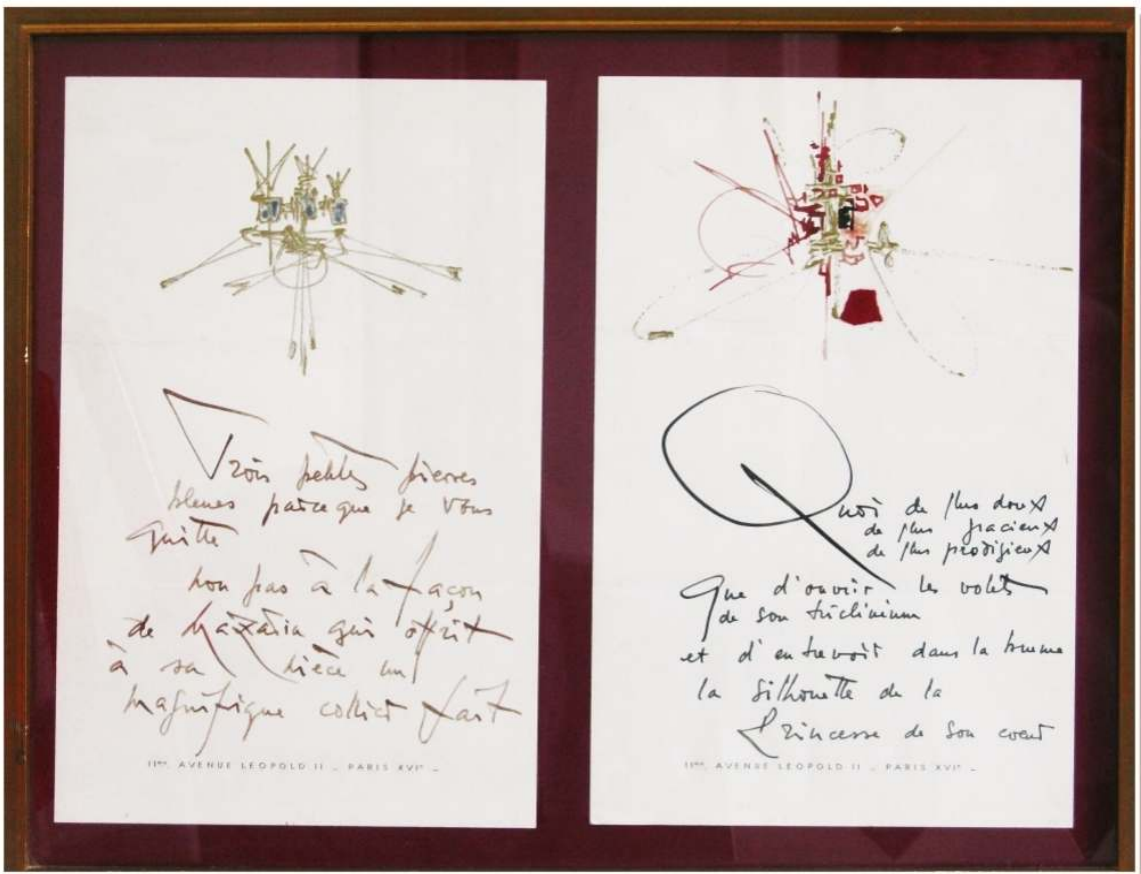 Trois petites pierres
bleues parce que je vous
quitte
non pas à la façon
de Mazarin qui offrit
à sa nièce un
magnifique collier fait
11bis, AVENUE LEOPOLD II _ PARIS XVIe _
Quoi de plus doux
de plus gracieux
de plus prodigieux
Que d'ouvrir les volets
de son triclinium
et d'entrevoir dans la brume
la silhouette de la
Princesse de son coeur
11bis, AVENUE LEOPOLD II _ PARIS XVIe _